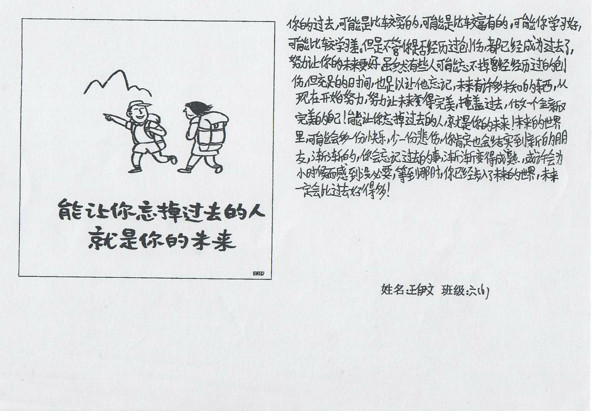 能让你忘掉过去的人
就是你的未来
你的过去,可能是比较穷的,可能是比较富有的,可能你学习好,
可能比较学习差,但是不管你是否经历过创伤,都已经成为过去了,
努力让你的未来更好,虽然有些人可能忘不掉曾经经历过的创
伤,但充足的时间,也足以让他忘记,未来有许多未知的东西,从
现在开始努力,努力让未来变得完美,掩盖过去,化成一个全新
完美的自己!能让你忘掉过去的人就是你的未来!未来的世界
里,可能会多一份快乐,少一份悲伤,你肯定也会结实到新的朋
友,渐渐的,你会忘记过去的事,渐渐变得成熟,或许会为
小时候而感到没必要,等到那时,你已经步入了未来的世界,未来
一定会比过去好得多!
姓名:王伊文 班级:六